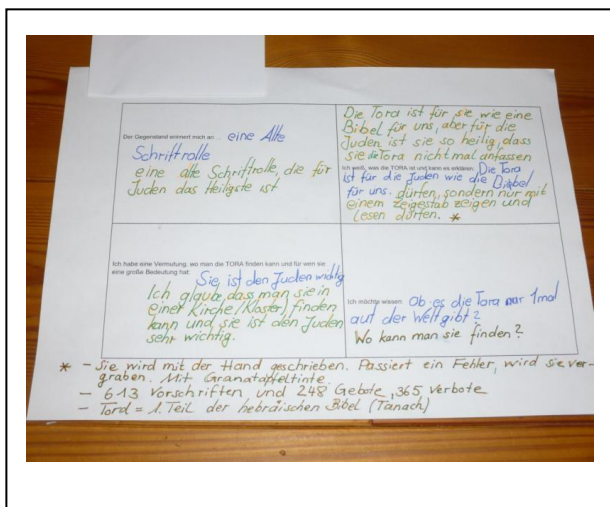 Der Gegenstand erinnert mich an ... eine Alte
Schriftrolle
eine alte Schriftrolle, die für
Juden das Heiligste ist
Die Tora ist für sie wie eine
Bibel für uns, aber für die
Juden ist sie so heilig, dass
sie die Tora nicht mal anfassen
Ich weiß, was die TORA ist und kann es erklären: Die Tora
ist für die Juden wie die Biebel
für uns. dürfen, sondern nur mit
einem zeigestab zeigen und
lesen dürfen. *
Ich habe eine Vermutung, wo man die TORA finden kann und für wen sie
eine große Bedeutung hat: Sie ist den Juden wichtig
Ich glaube, dass man sie in
einer Kirche/Kloster, finden
kann und sie ist den Juden
sehr wichtig.
Ich möchte wissen: Ob es die Tora nur 1mal
auf der Welt gibt?
Wo kann man sie finden?
* - Sie wird mit der Hand geschrieben. Passiert ein Fehler, wird sie ver-
graben. Mit Granatapfeltinte.
- 613 Vorschriften und 248 Gebote, 365 Verbote
- Tora = 1. Teil der hebräischen Bibel (Tanach)